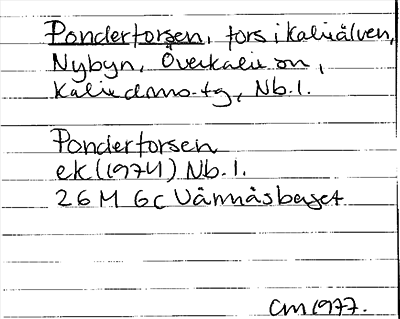 Ponderforsen, fors i Kalixälven,
Nybyn, Överkalix sn,
Kalix doms.tg, Nb.l.
Ponderforsen
ek (1974) Nb.l.
26 M 6c Vännäsberget
CM 1977.